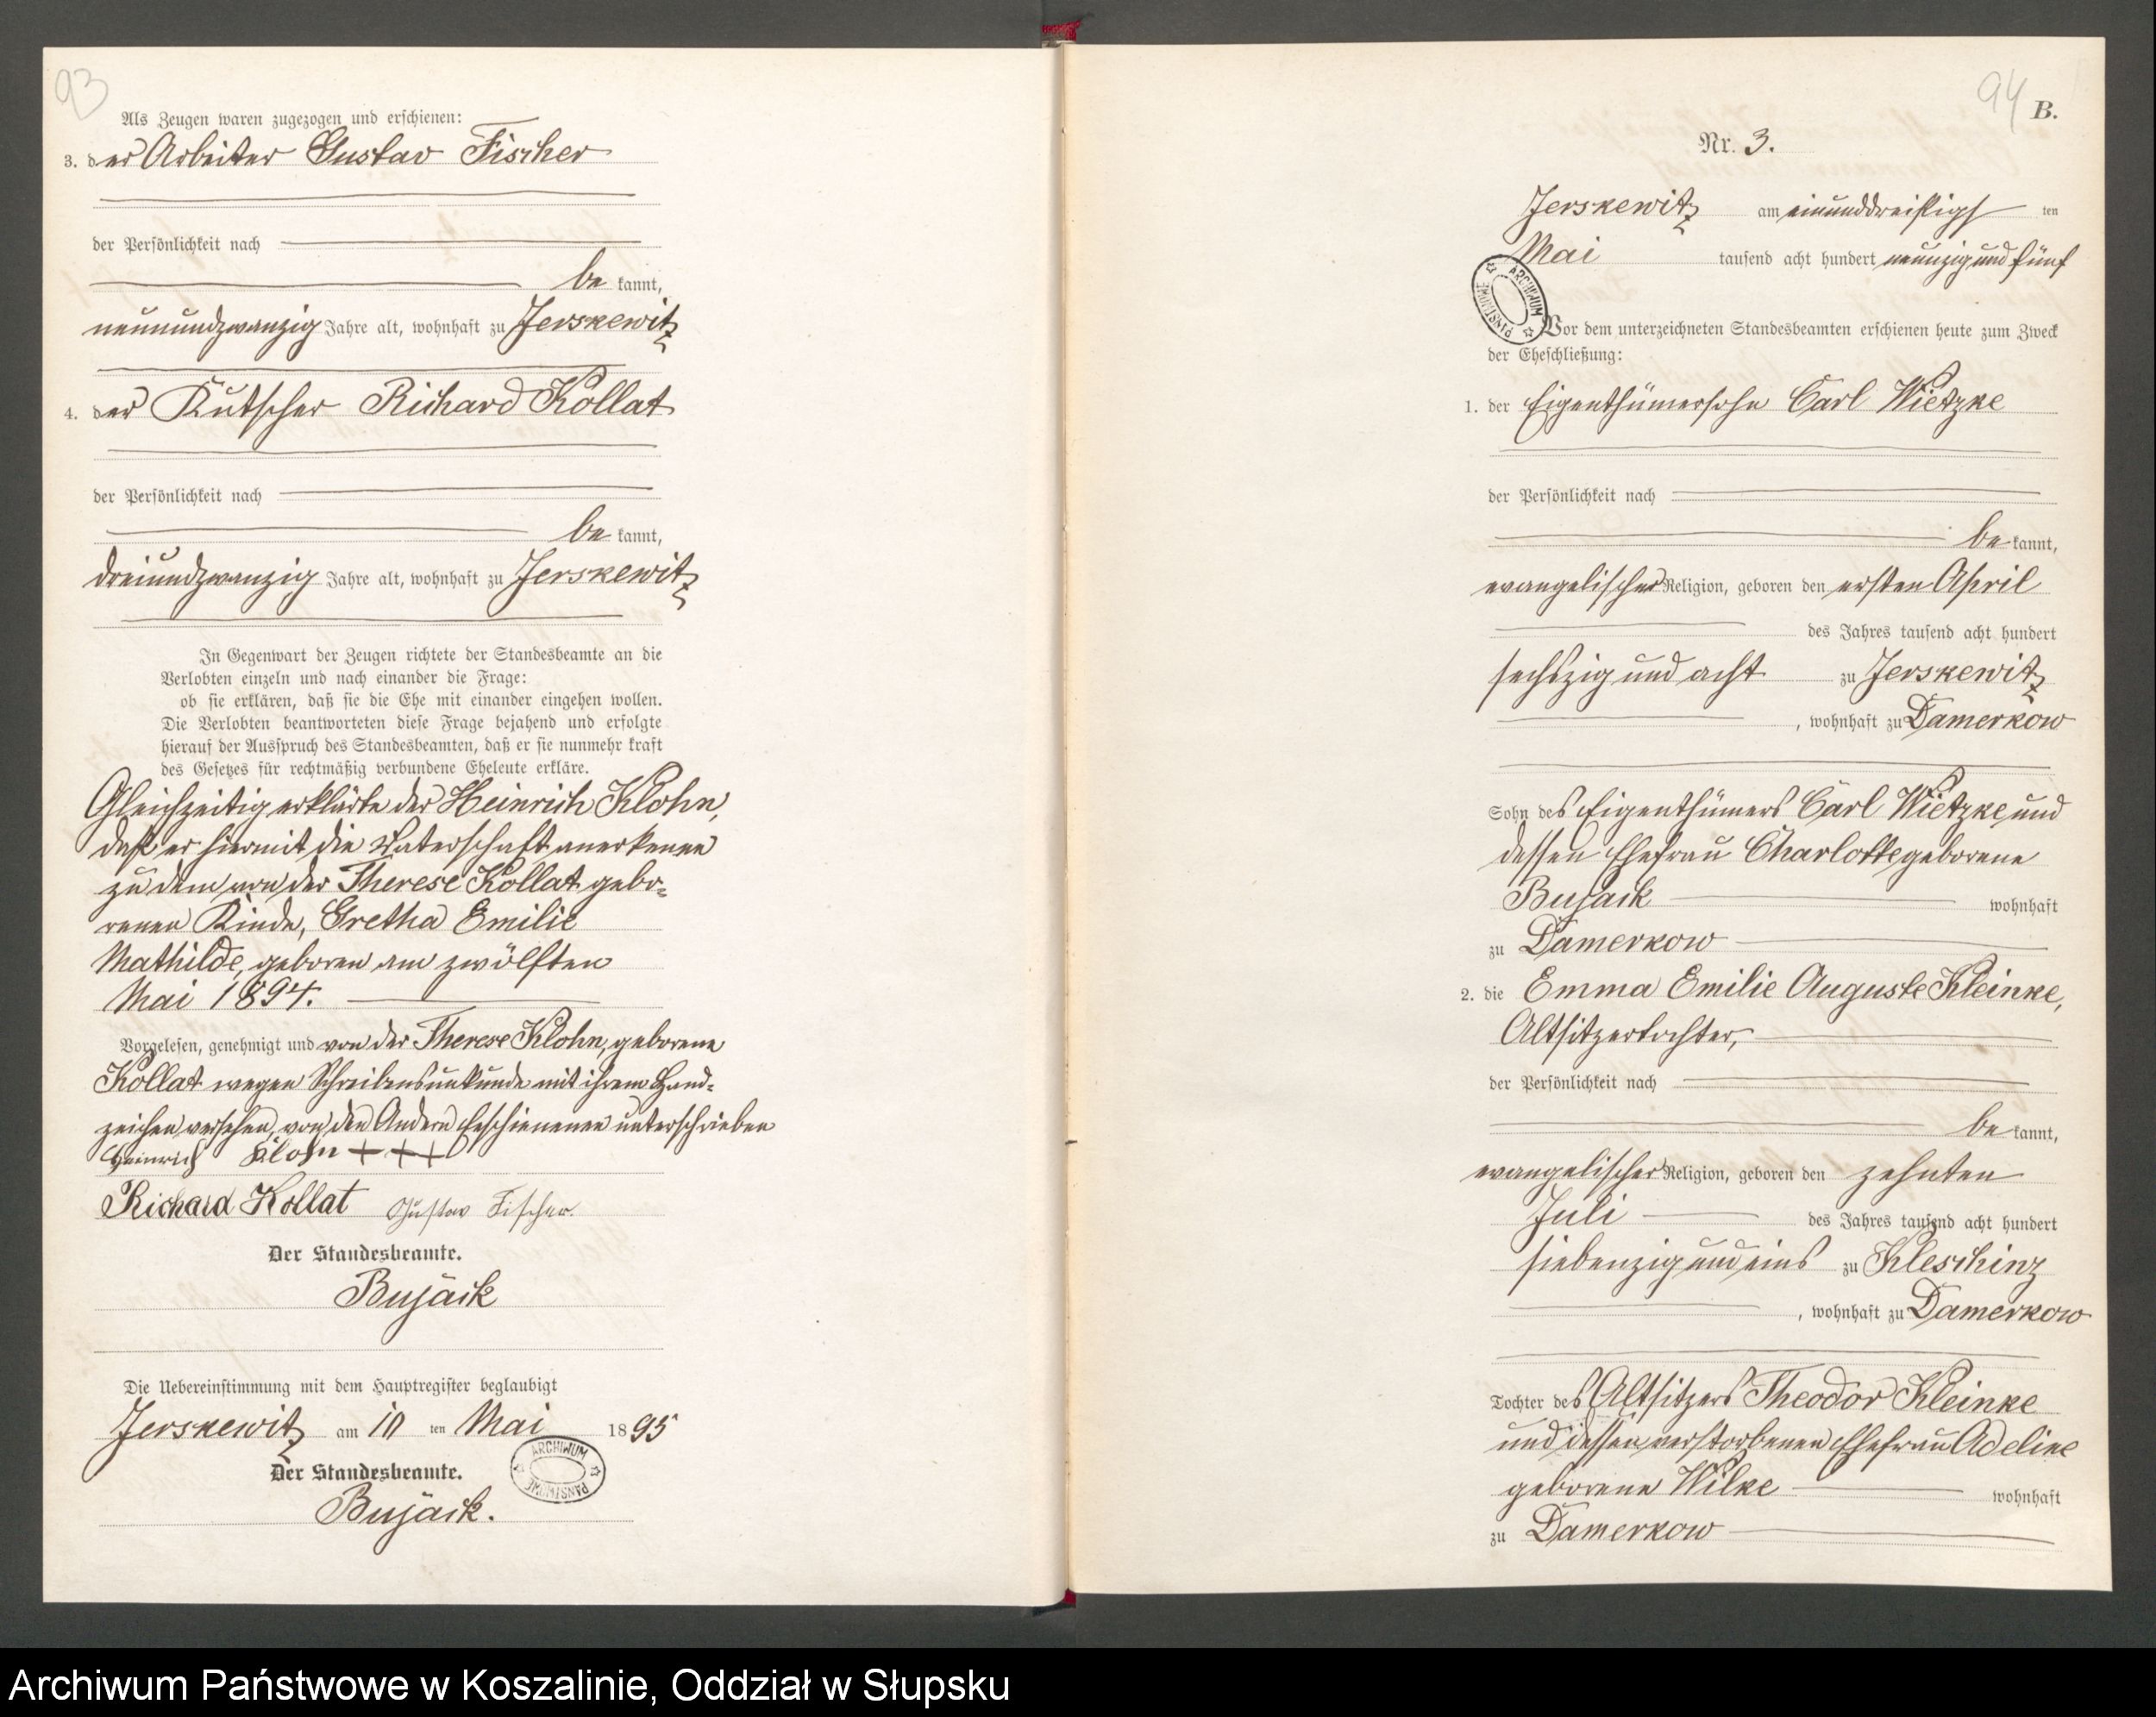 93
Als Zeugen waren zugezogen und erschienen:
3. der Arbeiter Gustav Fischer
der Persönlichkeit nach
be kannt,
neunundzwanzig Jahre alt, wohnhaft zu Jerskewitz
4. der Kutscher Richard Kollat
der Persönlichkeit nach
be kannt,
dreiundzwanzig Jahre alt, wohnhaft zu Jerskewitz
In Gegenwart der Zeugen richtete der Standesbeamte an die
Verlobten einzeln und nach einander die Frage:
ob sie erklären, daß sie die Ehe mit einander eingehen wollen.
Die Verlobten beantworteten diese Frage bejahend und erfolgte
hierauf der Ausspruch des Standesbeamten, daß er sie nunmehr kraft
des Gesetzes für rechtmäßig verbundene Eheleute erkläre.
Gleichzeitig erklärte der Heinrich Klohn,
daß er hiermit die Vaterschaft anerkenne
zu dem von der Therese Kollat gebo-
renen Kinde, Gretha Emilie
Mathilde, geboren am zwölften
Mai 1894.
Vorgelesen, genehmigt und von der Therese Klohn, geborene
Kollat wegen Schreibensunkunde mit ihrem Hand-
zeichen versehen, von den Andern Erschienenen unterschrieben
Heinrich Klohn +++
Richard Kollat Gustav Fischer.
Der Standesbeamte.
Bujack
Die Uebereinstimmung mit dem Hauptregister beglaubigt
Jerskewitz am 10 ten Mai 1895
Der Standesbeamte.
ARCHIWUM PAŃSTWOWE
Bujack.
94
B.
Nr. 3.
Jerskewitz am einunddreißigs ten
Mai tausend acht hundert neunzig und fünf
ARCHIWUM PAŃSTWOWE
Vor dem unterzeichneten Standesbeamten erschienen heute zum Zweck
der Eheschließung:
1. der Eigenthümersohn Carl Wietzke
der Persönlichkeit nach
be kannt,
evangelischer Religion, geboren den ersten April
des Jahres tausend acht hundert
sechszig und acht zu Jerskewitz
, wohnhaft zu Damerkow
Sohn des Eigenthümers Carl Wietzke und
dessen Ehefrau Charlotte geborene
Bujack wohnhaft
zu Damerkow
2. die Emma Emilie Auguste Kleinke,
Altsitzertochter,
der Persönlichkeit nach
be kannt,
evangelischer Religion, geboren den zehnten
Juli des Jahres tausend acht hundert
siebenzig und eins zu Kleschinz
, wohnhaft zu Damerkow
Tochter des Altsitzers Theodor Kleinke
und dessen verstorbenen Ehefrau Adeline
geborene Wilke wohnhaft
zu Damerkow
Archiwum Państwowe w Koszalinie, Oddział w Słupsku